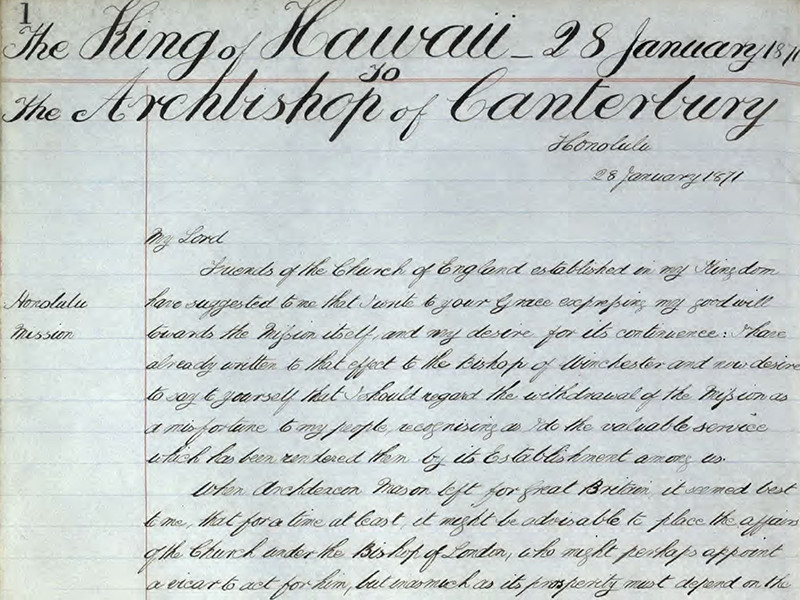 1
The King of Hawaii_28 January 187
To
The Archbishop of Canterbury
Honolulu
28 January 1871
My Lord
Friends of the Church of England established in my Kingdom
Honolulu have suggested to me that I write to your Grace expressing my good will
Mission towards the Mission itself, and my desire for its continuence: I have
already written to that effect to the Bishop of Winchester and now desire
to say to yourself that I should regard the withdrawal of the Mission as
a misfortune to my people, recognising as I do the valuable service
which has been rendered them by its Establishment among us.
When Archdeacon Mason left for Great Britain, it seemed best
to me, that for a time at least, it might be advisable to place the affairs
of the Church under the Bishop of London, who might perhaps appoint
a vicar to act for him, but inasmuch as its prosperity must depend on the